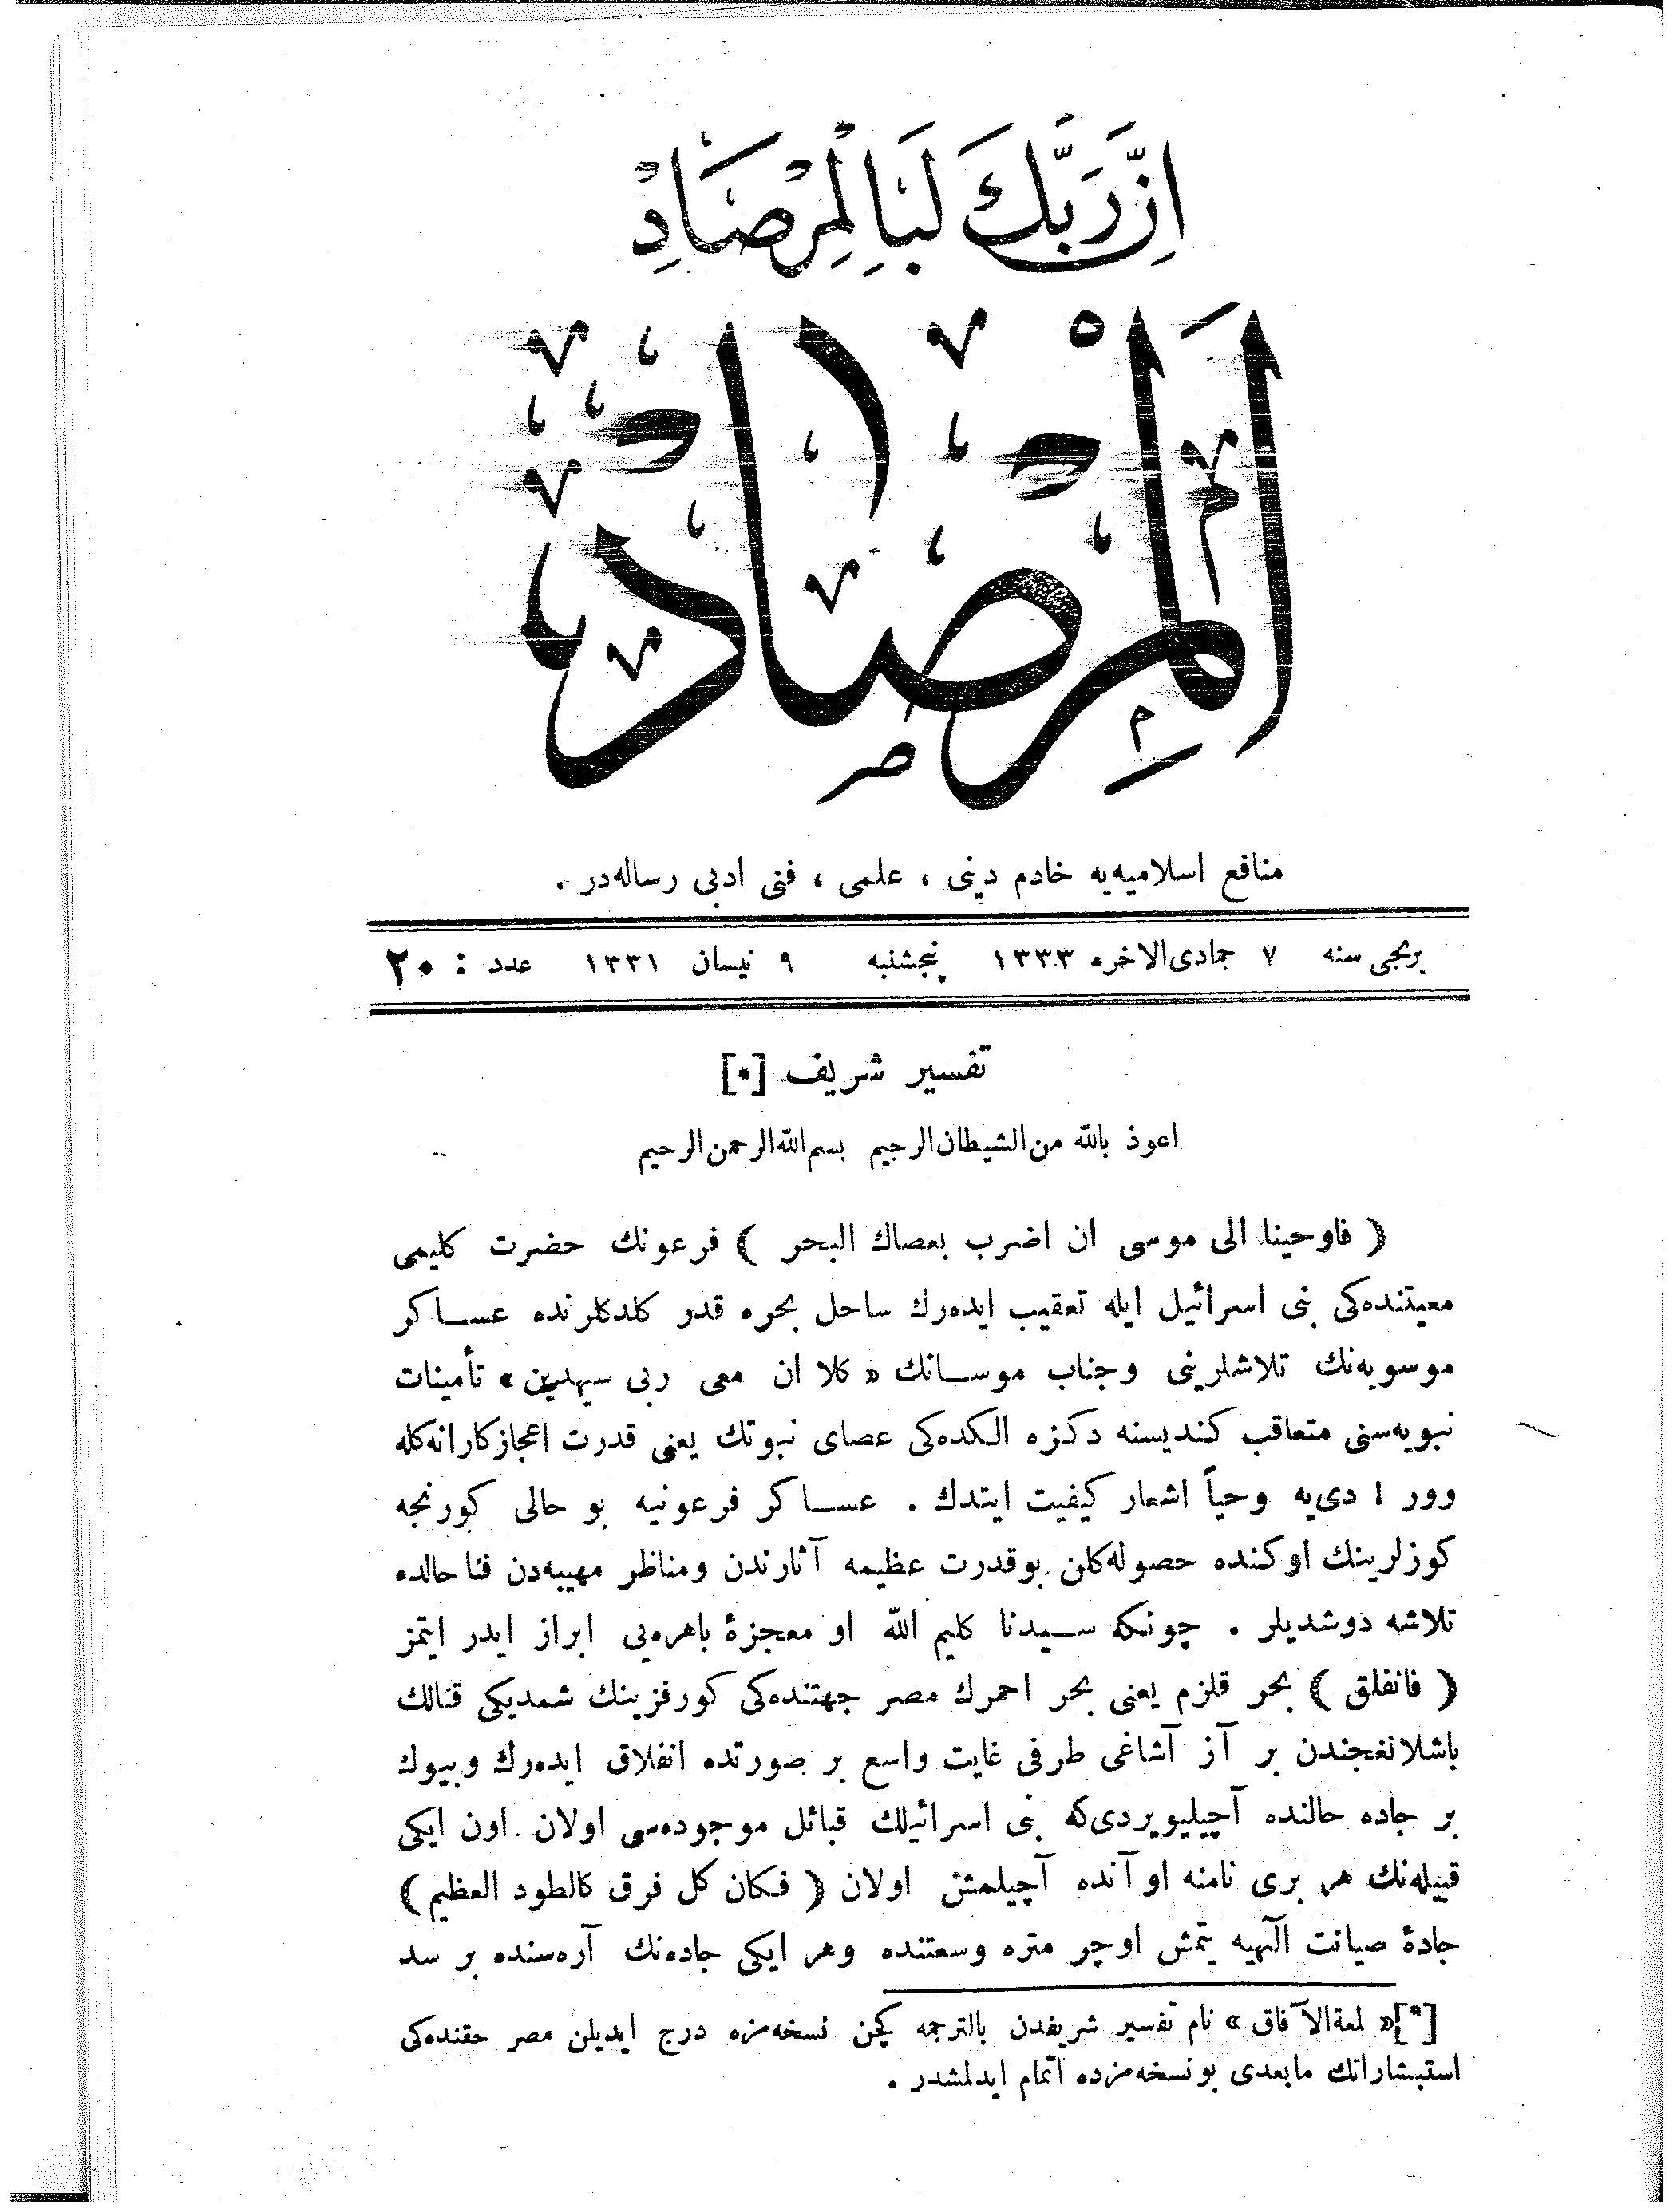 اِنَّ رَبَّكَ لَبِالْمِرْصَادِ
اَلْمِرْصَاد
منافع اسلاميه‌يه خادم دينى ، علمى ، فنى ادبى رساله‌در .
برنجى سنه ٧ جمادى‌الاخره ١٣٣٣ پنجشنبه ٩ نيسان ١٣٣١ عدد : ٢٠
تفسير شريف [*]
اعوذ بالله من‌الشيطان‌الرجيم بسم‌الله‌الرحمن‌الرحيم
﴿ فاوحينا الى موسى ان اضرب بعصاك البحر ﴾ فرعونك حضرت كليمى
معيتنده‌كى بنى اسرائيل ايله تعقيب ايده‌رك ساحل بحره قدر كلدكلرنده عساكر
موسويه‌نك تلاشلرينى وجناب موسانك « كلا ان معى ربى سيهدين » تأمينات
نبويه‌سنى متعاقب كنديسنه دكزه الكده‌كى عصاى نبوتك يعنى قدرت اعجازكارانه‌كله
وور ! دى‌يه وحياً اشعار كيفيت ايتدك . عساكر فرعونيه بو حالى كورنجه
كوزلرينك اوكنده حصوله‌كلن بوقدرت عظيمه آثارندن ومناظر مهيبه‌دن فنا حالده
تلاشه دوشديلر . چونكه سيدنا كليم الله او معجزۀ باهره‌يى ابراز ايدر ايتمز
﴿ فانفلق ﴾ بحر قلزم يعنى بحر احمرك مصر جهتنده‌كى كورفزينك شمديكى قنالك
باشلانغجندن بر آز آشاغى طرفى غايت واسع بر صورتده انفلاق ايده‌رك وبيوك
بر جاده حالنده آچيليويردى‌كه بنى اسرائيلك قبائل موجوده‌سى اولان اون ايكى
قبيله‌نك هر برى نامنه او آنده آچيلمش اولان ﴿ فكان كل فرق كالطود العظيم ﴾
جادۀ صيانت آلهيه يتمش اوچر متره وسعتنده وهر ايكى جاده‌نك آره‌سنده بر سد
[*] « لمعة‌الآفاق » نام تفسير شريفدن بالترجمه كچن نسخه‌مزه درج ايديلن مصر حقنده‌كى
استبشاراتك مابعدى بونسخه‌مزده اتمام ايدلمشدر .